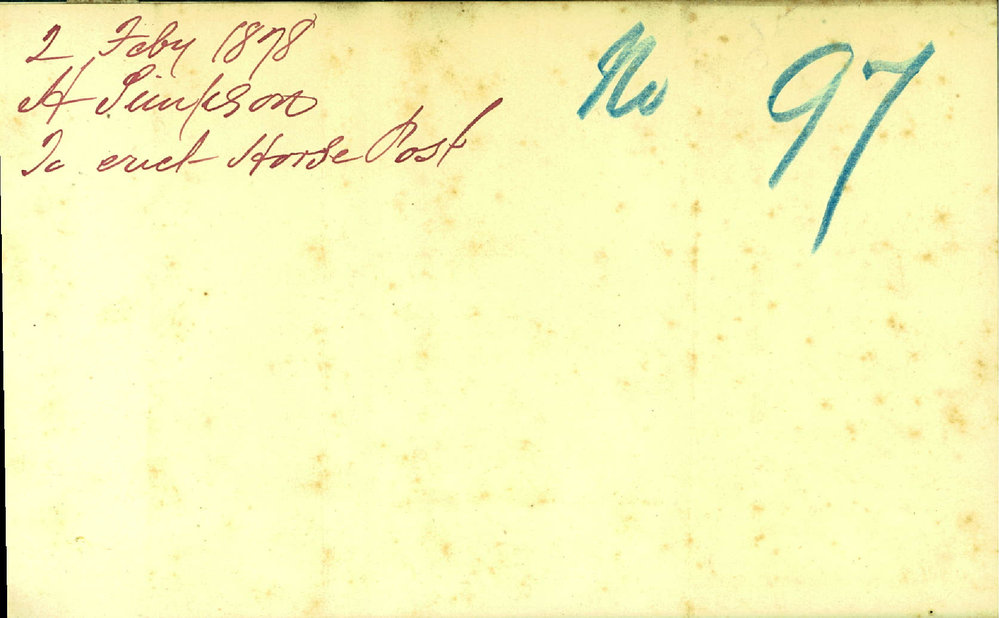 2 Feby 1878
H Simpson
To erect Horse Post
No 97